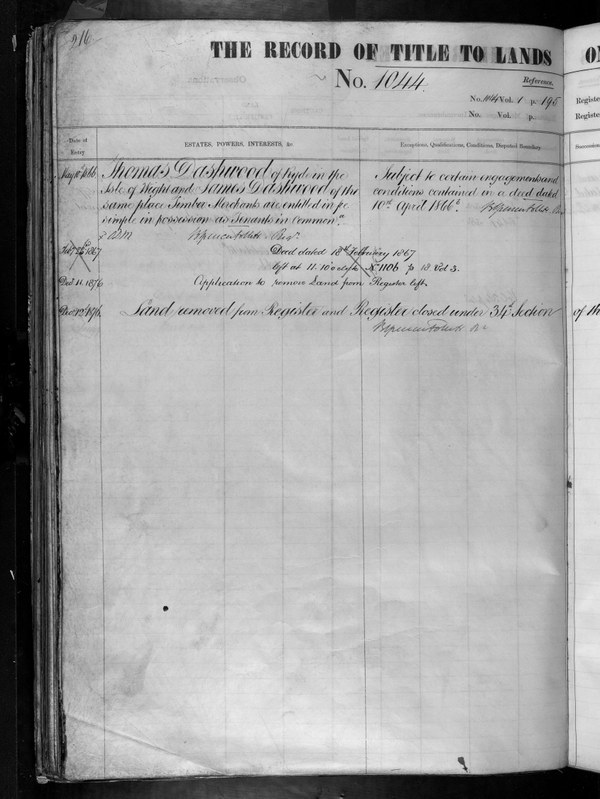 216
THE RECORD OF TITLE TO LANDS
No. 1044.
Reference.
No. 1044 Vol. 1 p. 195
No. Vol. p.
Date of Entry
ESTATES, POWERS, INTERESTS, &c
Exceptions, Qualifications, Conditions, Disputed Boundary.
May 10th 1866 Thomas Dashwood of Ryde in the
Isle of Wight and James Dashwood of the
same place Timber Merchants are entitled in fee
simple in possession as Tenants in Common.
Subject to certain engagements and
conditions contained in a deed dated
10th April 1866.
Feby 1867 Deed dated 18th February 1867
left at 11.10 o'clock No 1106 p 13 Vol 3.
Decr 11. 1876 Application to remove Land from Register left.
1876 Land removed from Register and Register closed under 34th Section
of th
O
Registe
Registe
Succession